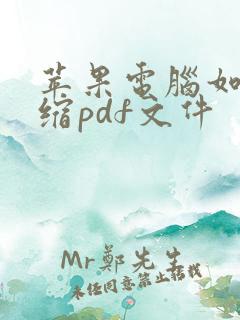 苹果電腦如
缩pdf文件
Mr鄭先生
未经同意禁止搭载